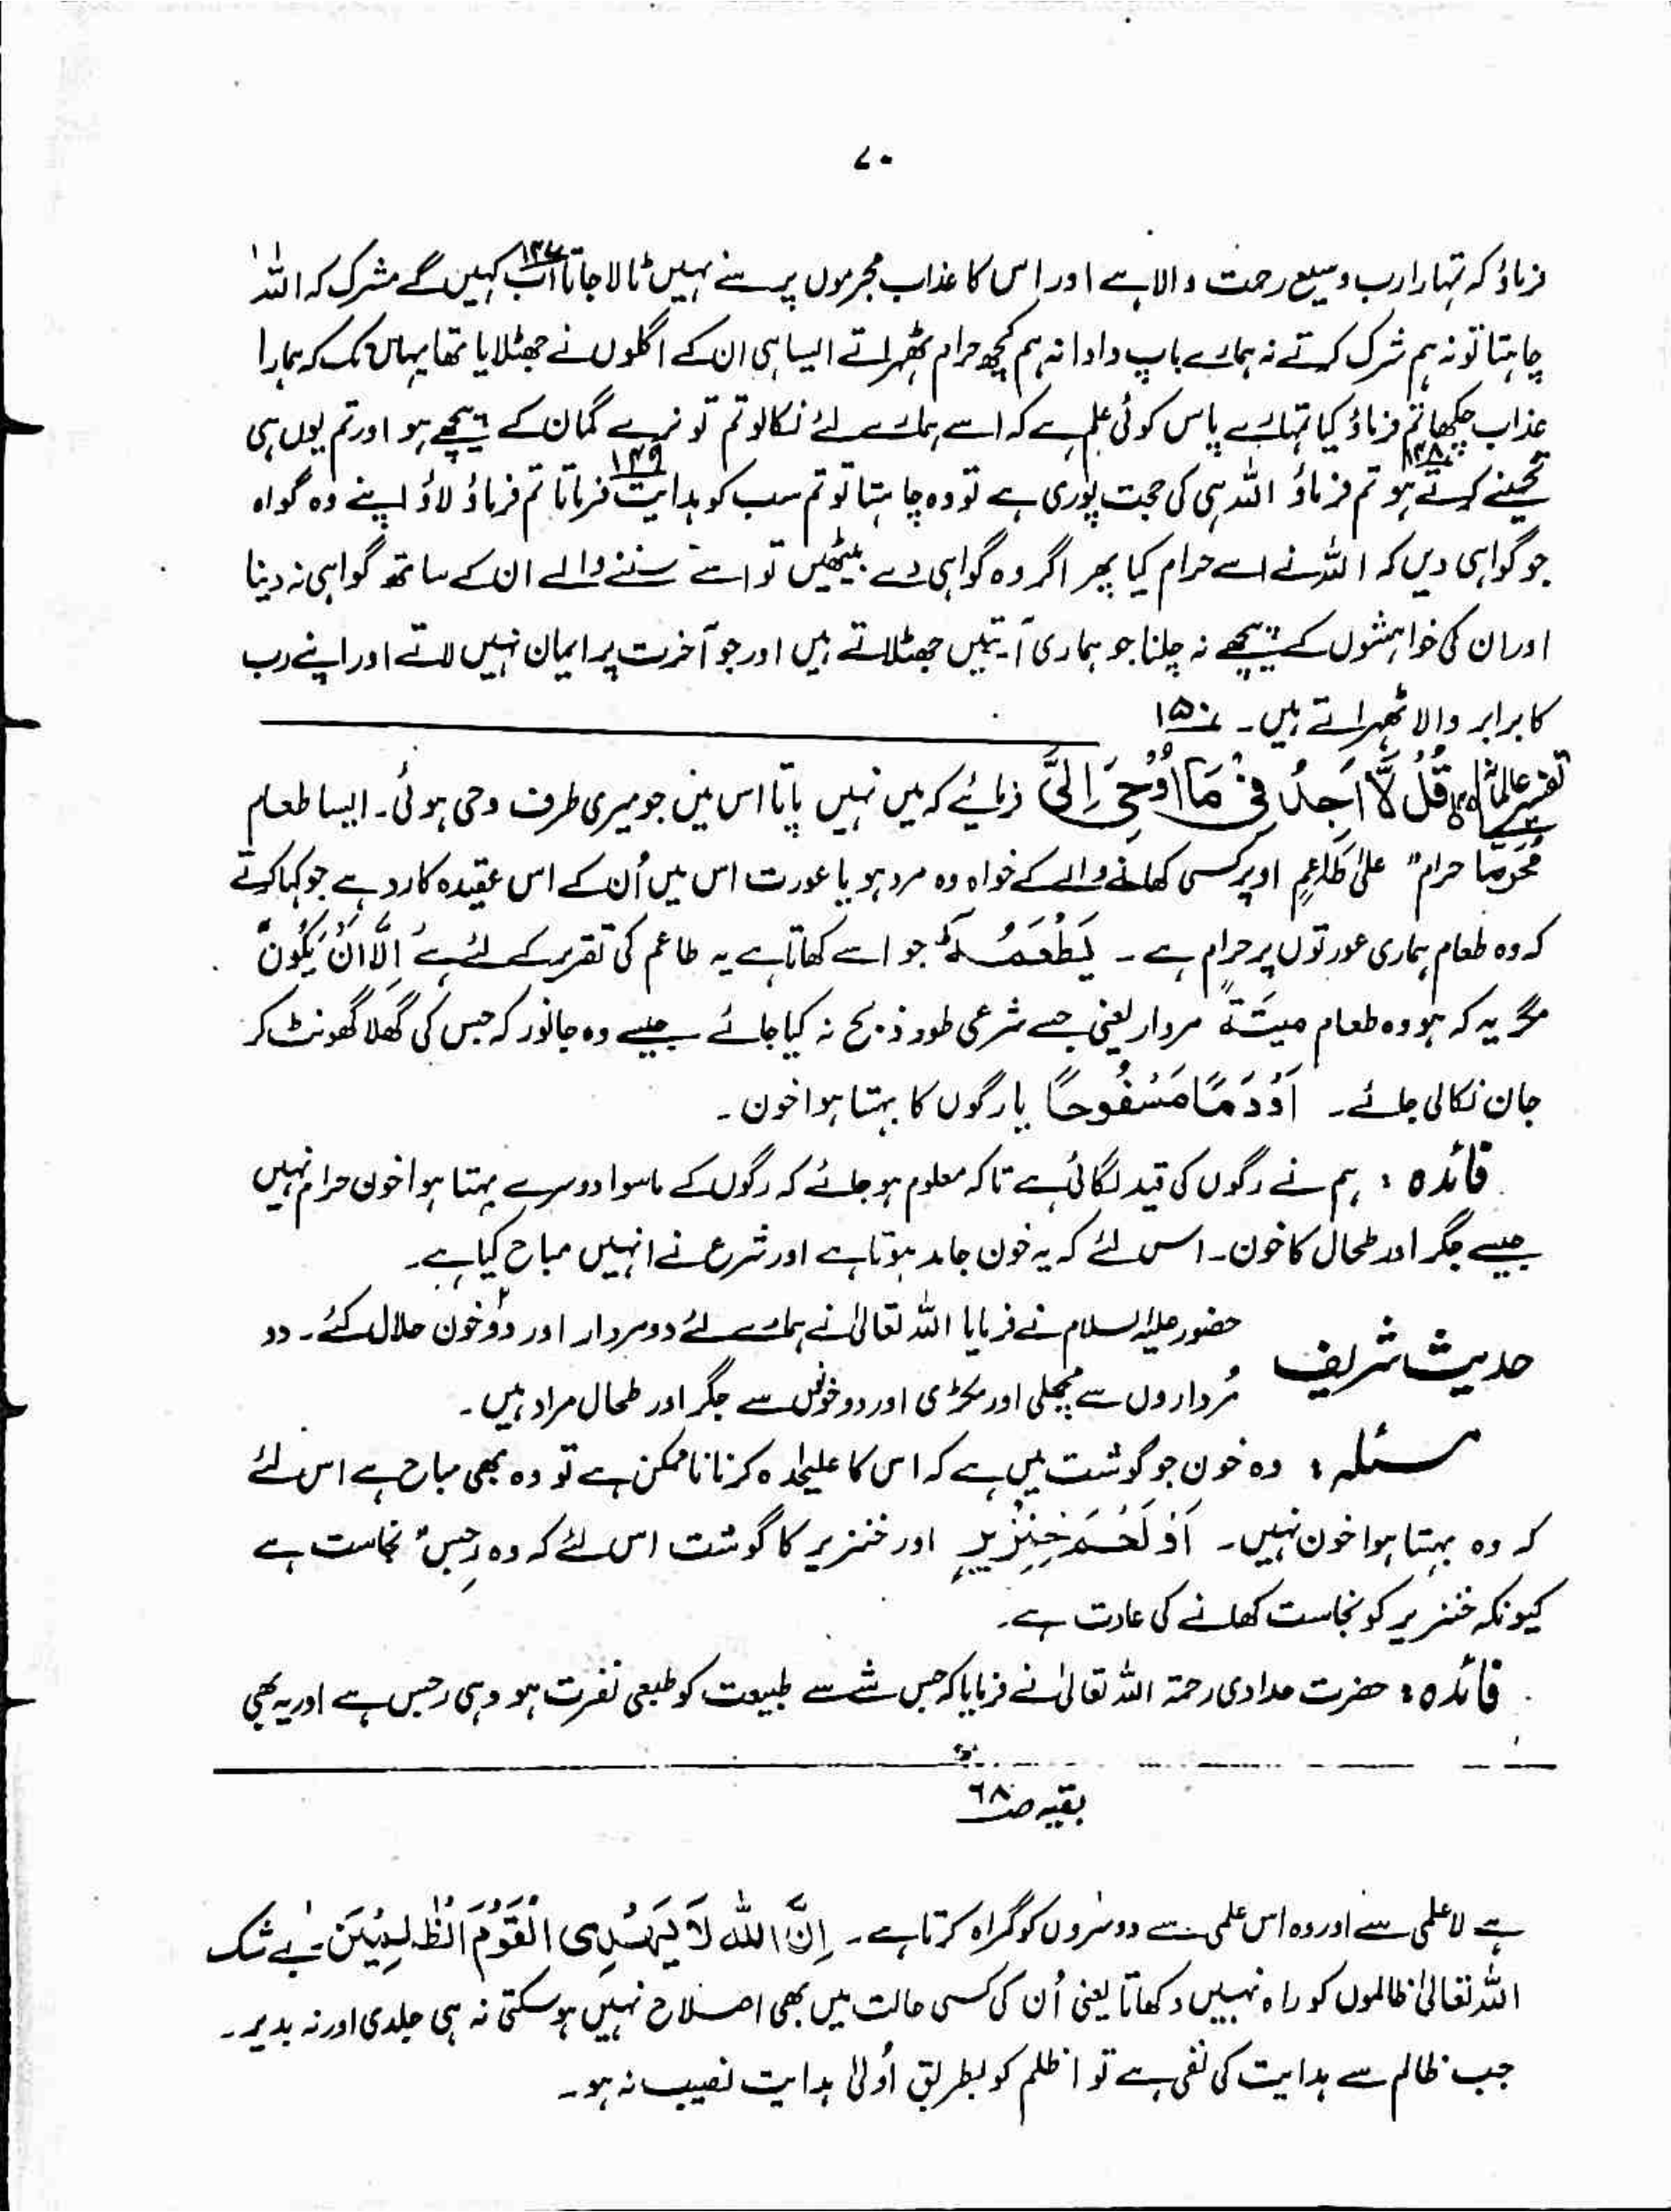 ۷۰
فرماؤ کہ تمہارا رب وسیع رحمت والا ہے اور اس کا عذاب مجرموں پر سے نہیں ٹالا جاتا ۱۴۷ اب کہیں گے مشرک کہ اللہ
چاہتا تو نہ ہم شرک کرتے نہ ہمارے باپ دادا نہ ہم کچھ حرام ٹھہراتے ایسا ہی ان کے اگلوں نے جھٹلایا تھا یہاں تک کہ ہمارا
عذاب چکھا تم فرماؤ کیا تمہارے پاس کوئی علم ہے کہ اسے ہمارے لئے نکالو تم تو نرے گمان کے پیچھے ہو اور تم یوں ہی
تخمینے کرتے ہو ۱۴۸ تم فرماؤ اللہ ہی کی حجت پوری ہے تو وہ چاہتا تو تم سب کو ہدایت فرماتا ۱۴۹ تم فرماؤ لاؤ اپنے وہ گواہ
جو گواہی دیں کہ اللہ نے اسے حرام کیا پھر اگر وہ گواہی دے بیٹھیں تو اے سننے والے ان کے ساتھ گواہی نہ دینا
اور ان کی خواہشوں کے پیچھے نہ چلنا جو ہماری آیتیں جھٹلاتے ہیں اور جو آخرت پر ایمان نہیں لاتے اور اپنے رب
کا برابر والا ٹھہراتے ہیں۔ ۱۵۰
تفسیر عالمانہ قُلْ لَّا اَجِدُ فِیْ مَا اُوْحِیَ اِلَیَّ فرمائیے کہ میں نہیں پاتا اس میں جو میری طرف وحی ہوئی۔ ایسا طعام
مُحَرَّمًا حرام" علیٰ طَاعِمٍ اوپر کسی کھانے والے کے خواہ وہ مرد ہو یا عورت اس میں اُن کے اس عقیدہ کا رد ہے جو کہا کرتے
کہ وہ طعام ہماری عورتوں پر حرام ہے۔ یَطْعَمُہٗ جو اسے کھاتا ہے یہ طاعم کی تقریر کے لئے ہے اِلَّا اَنْ یَّکُوْنَ
مگر یہ کہ ہو وہ طعام میتَۃً مردار یعنی جسے شرعی طور ذبح نہ کیا جائے جیسے وہ جانور کہ جس کی گھلا گھونٹ کر
جان نکالی جائے۔ اَوْ دَمًا مَسْفُوحًا یا رگوں کا بہتا ہوا خون۔
فائدہ : ہم نے رگوں کی قید لگائی ہے تاکہ معلوم ہو جائے کہ رگوں کے ماسوا دوسرے بہتا ہوا خون حرام نہیں
جیسے جگر اور طحال کا خون۔ اس لئے کہ یہ خون جامد ہوتا ہے اور شرع نے انہیں مباح کیا ہے۔
حدیث شریف حضور علیہ السلام نے فرمایا اللہ تعالیٰ نے ہمارے لئے دو مردار اور دو خون حلال کئے۔ دو
مُرداروں سے مچھلی اور مکڑی اور دو خونوں سے جگر اور طحال مراد ہیں۔
مسئلہ : وہ خون جو گوشت میں ہے کہ اس کا علیٰحدہ کرنا ناممکن ہے تو وہ بھی مباح ہے اس لئے
کہ وہ بہتا ہوا خون نہیں۔ اَوْ لَحْمَ خِنْزِیْرٍ اور خنزیر کا گوشت اس لئے کہ وہ رِجس نجاست ہے
کیونکہ خنزیر کو نجاست کھانے کی عادت ہے۔
فائدہ : حضرت حدادی رحمۃ اللہ تعالیٰ نے فرمایا کہ جس شے سے طبیعت کو طبعی نفرت ہو وہی رجس ہے اور یہ بھی
بقیہ صـ ۶۸
ہے لاعلمی سے اور وہ اس علمی سے دوسروں کو گمراہ کرتا ہے۔ اِنَّ اللّٰہَ لَا یَہْدِی الْقَوْمَ الظّٰلِمِیْنَ۔ بے شک
اللہ تعالیٰ ظالموں کو راہ نہیں دکھاتا یعنی اُن کی کسی حالت میں بھی اصلاح نہیں ہو سکتی نہ ہی جلدی اور نہ بدیر۔
جب ظالم سے ہدایت کی نفی ہے تو اظلم کو بطریق اَولیٰ ہدایت نصیب نہ ہو۔